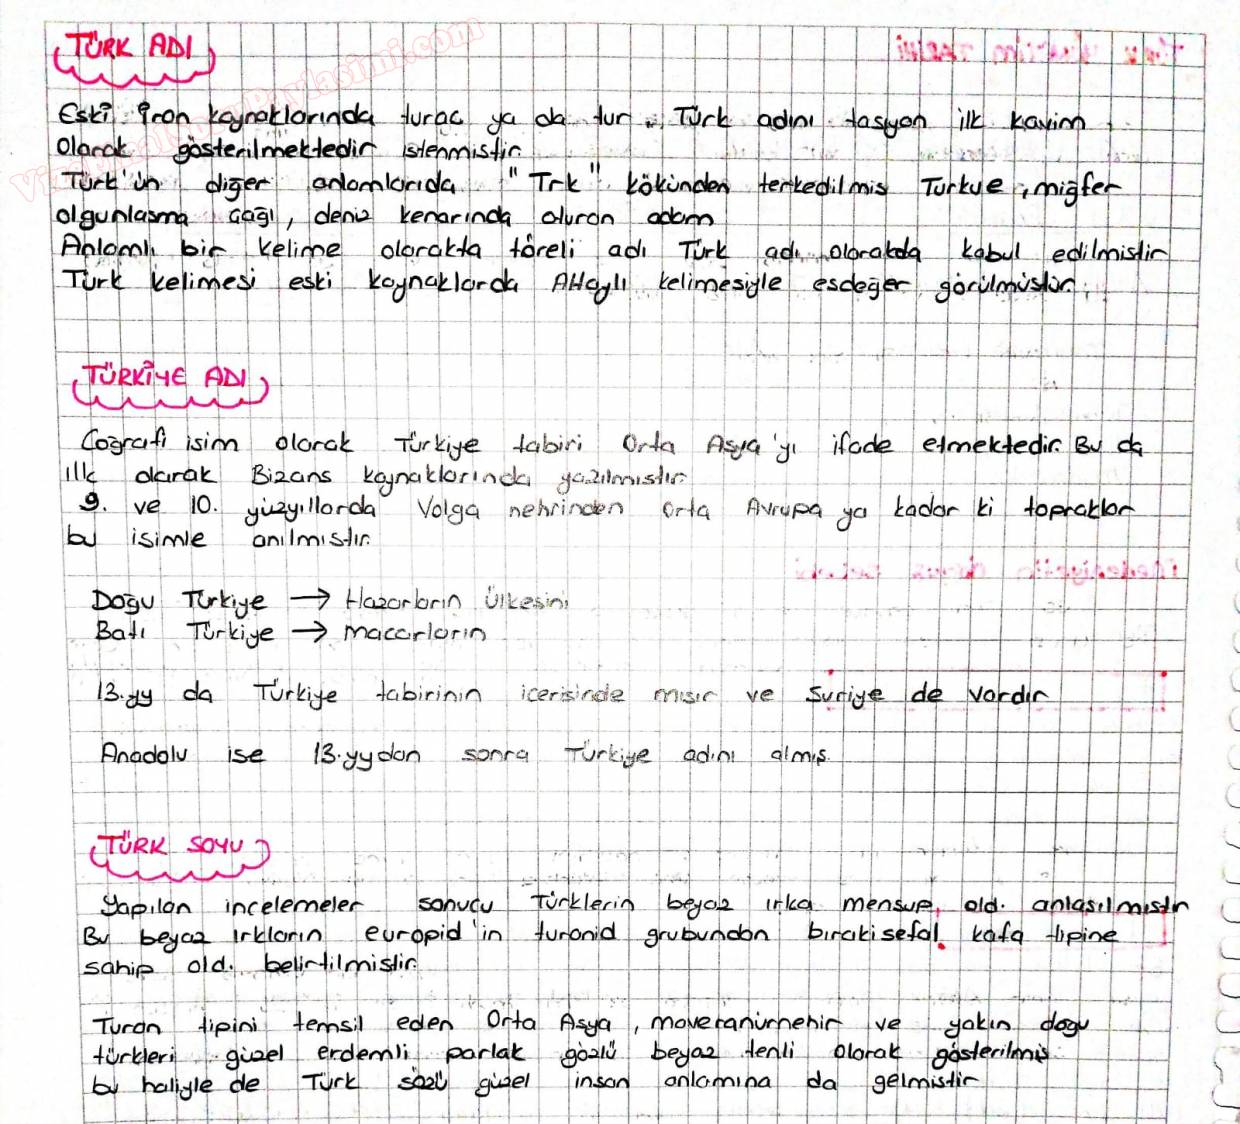 TÜRK ADI
Eski İran kaynaklarında turac ya da tur. Türk adını tasyan ilk kavim
olarak gösterilmektedir istenmistir.
Türk'ün diğer anlamlarıda "Trk" kökünden terkedilmis Turkue, miğfer
olgunlasma çağı, deniz kenarında oturan adam
Anlamlı bir kelime olarakta töreli adı Türk adı olarakda kabul edilmistir
Türk kelimesi eski kaynaklarda Altaylı kelimesiyle esdeğer görülmüstür.
TÜRKİYE ADI
Coğrafi isim olarak Türkiye tabiri Orta Asya'yı ifade etmektedir. Bu da
ilk olarak Bizans kaynaklarında yazılmıstır.
9. ve 10. yüzyıllarda Volga nehrinden Orta Avrupa ya kadar ki topraklar
bu isimle anılmıstır.
Doğu Türkiye → Hazarların ülkesini
Batı Türkiye → macarların
13.yy da Türkiye tabirinin icerisinde mısır ve Suriye de vardır
Anadolu ise 13.yydan sonra Türkiye adını almış.
TÜRK SOYU
Yapılan incelemeler sonucu Türklerin beyaz ırka mensup old. anlasılmıstır
Bu beyaz ırkların europid'in turanid grubundan bırakisefal kafa tipine
sahip old. belirtilmistir.
Turan tipini temsil eden Orta Asya, maveranürnehir ve yakın dogu
türkleri güzel erdemli parlak gözlü beyaz tenli olarak gösterilmis
bu haliyle de Türk sözü güzel insan anlamına da gelmistir
VizeFinalSoruPaylasimi.com